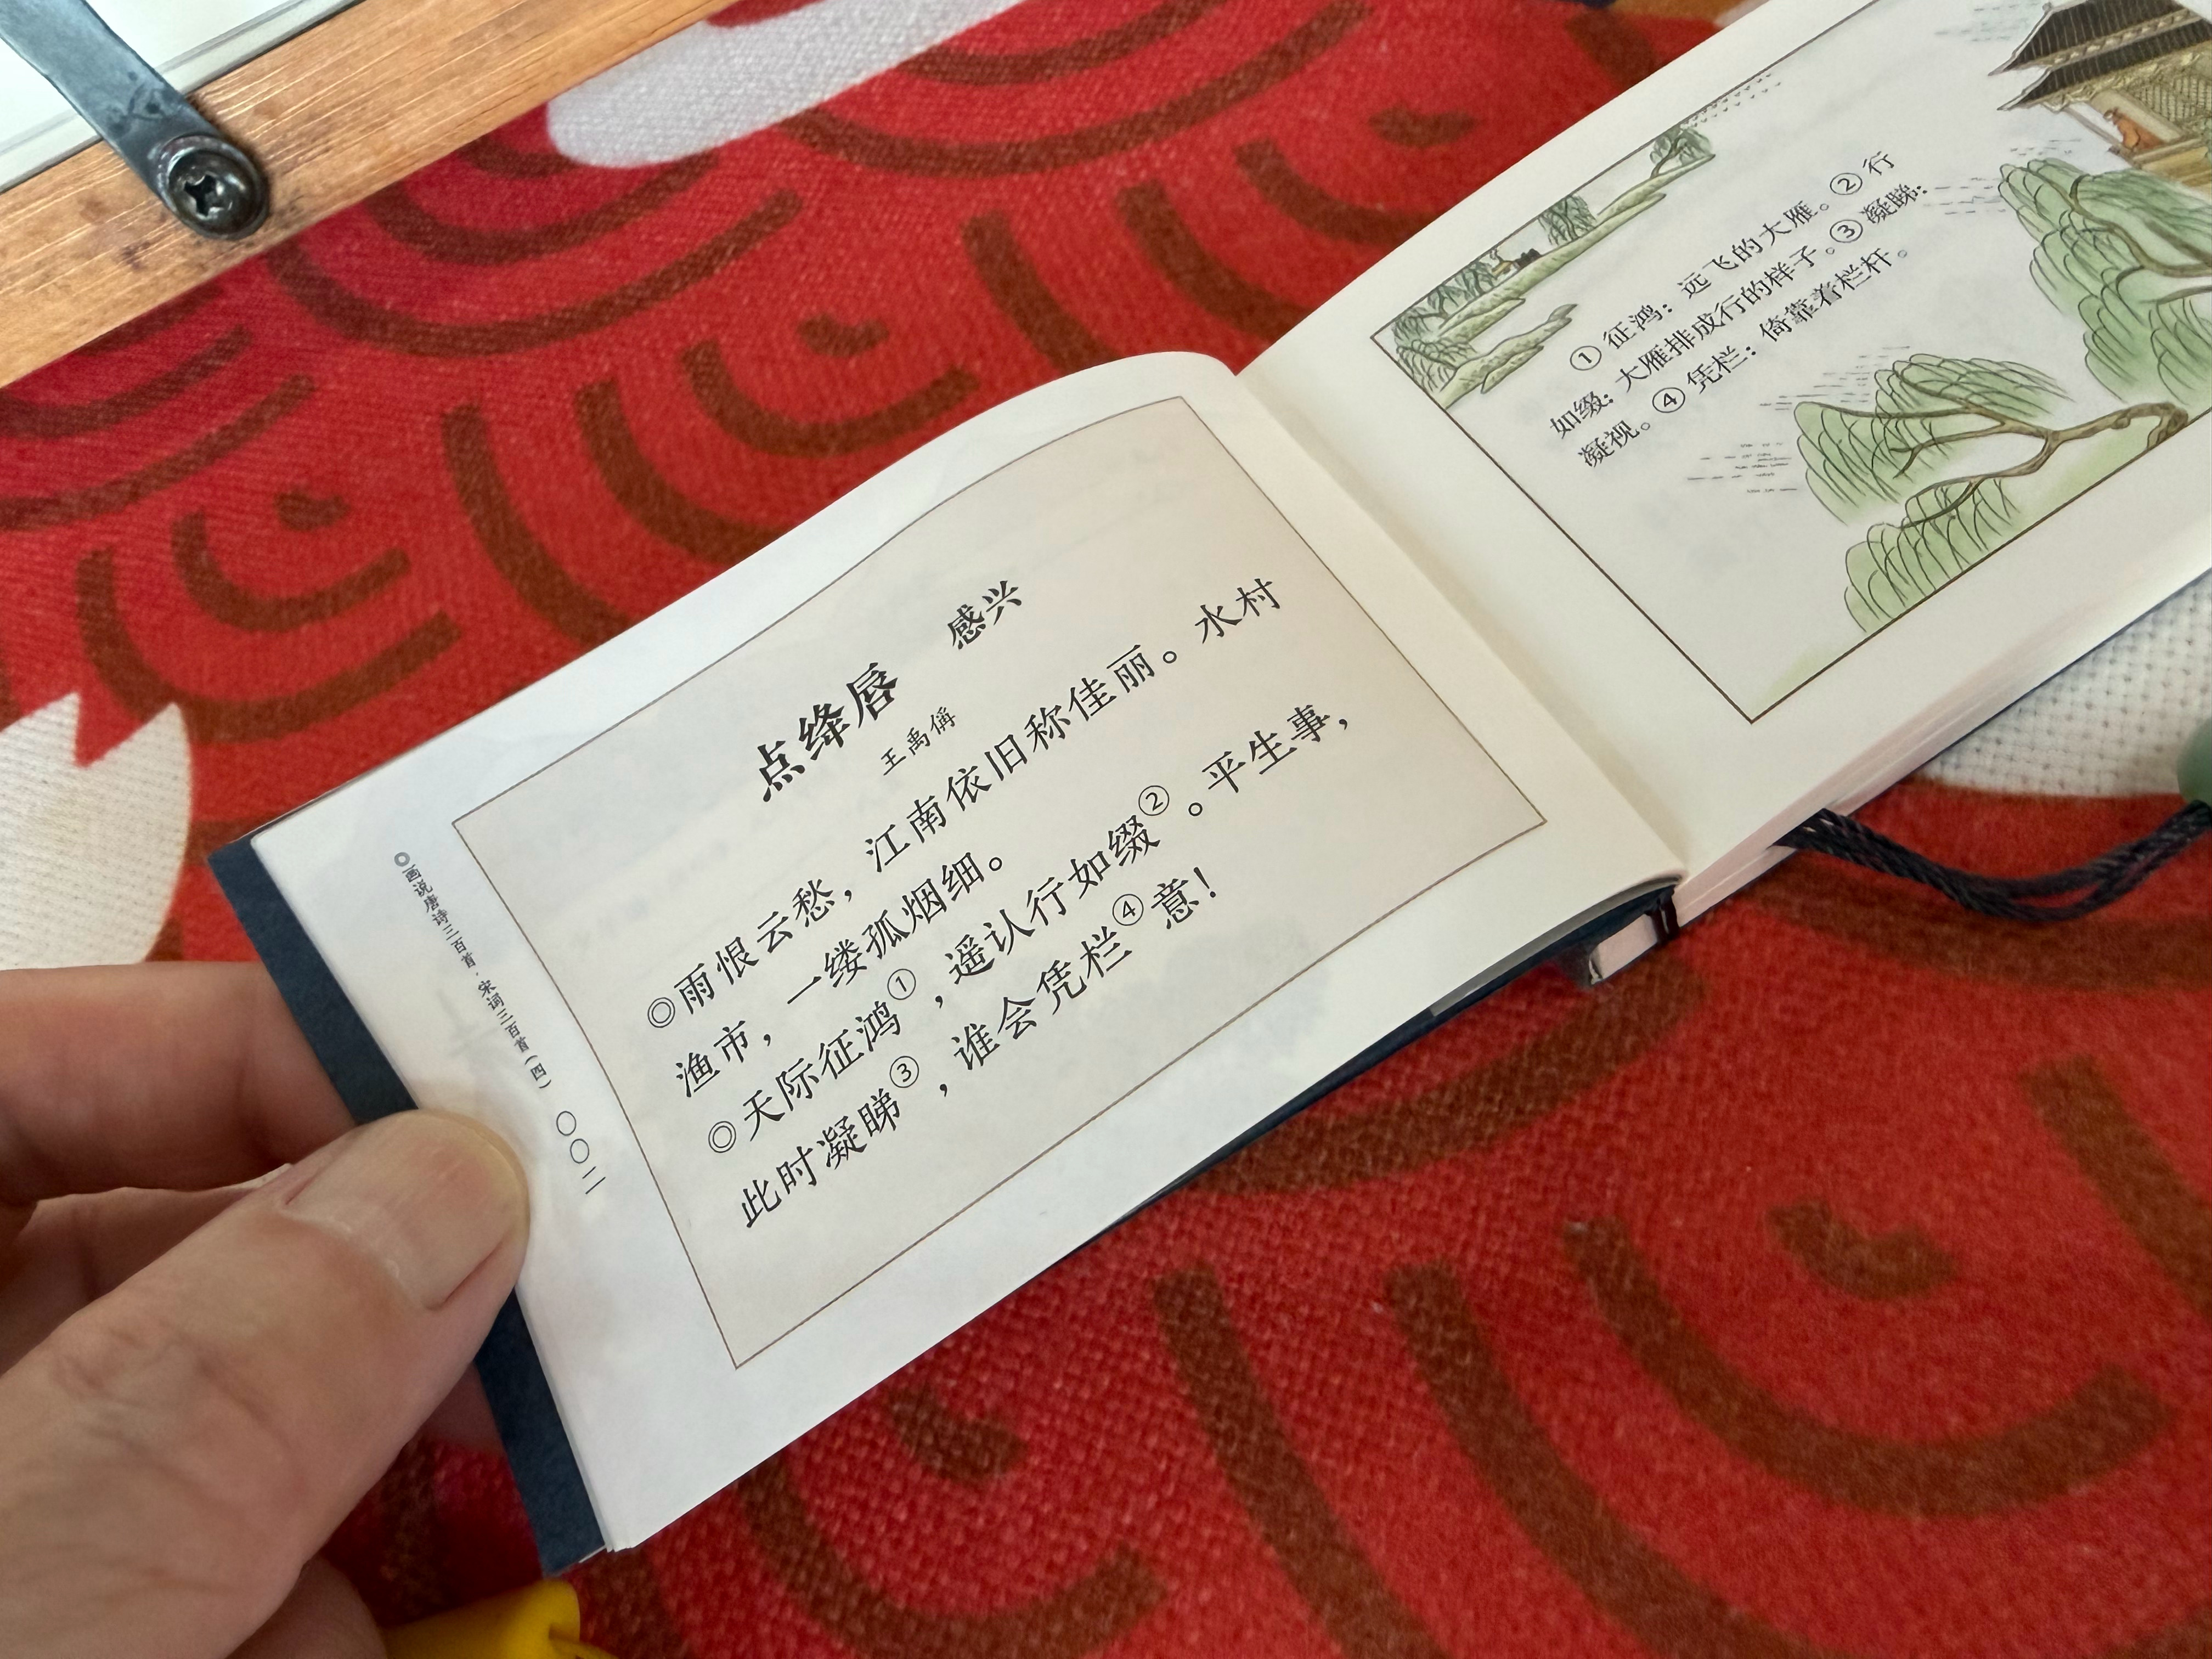 点绛唇 感兴
王禹偁
◎雨恨云愁，江南依旧称佳丽。水村
渔市，一缕孤烟细。
◎天际征鸿①，遥认行如缀②。平生事，
此时凝睇③，谁会凭栏④意！
◎画说唐诗三百首·宋词三百首（四） 〇〇二
①征鸿：远飞的大雁。②行
如缀：大雁排成行的样子。③凝睇：
凝视。④凭栏：倚靠着栏杆。